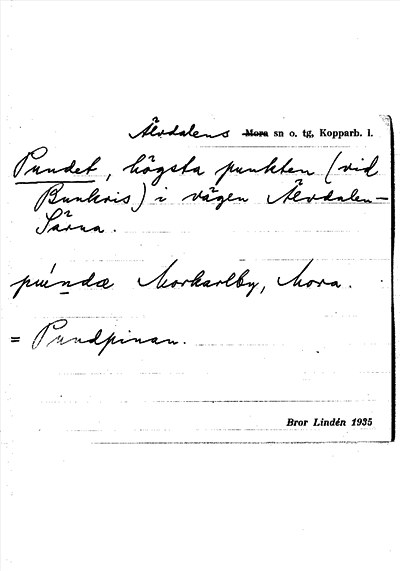 Älvdalens Mora sn o. tg, Kopparb. l.
Pundet, högsta punkten (vid
Bunkris) i vägen Älvdalen-
Särna.
púndæ Morkarlby, Mora.
= Pundpinan.
Bror Lindén 1935